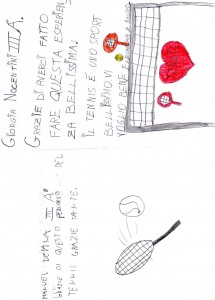 GIORGIA NOCENTINI III A.
GRAZIE DI AVERCI FATTO
FARE QUESTA ESPERIEN
ZA BELLISSIMA!
IL TENNIS È UNO SPORT
BELLISSIMO VI
VOGLIO BENE
MANUEL III A
GRAZIE DI QUESTO PERCORSO DEL
TENNIS GRAZIE TANTE.